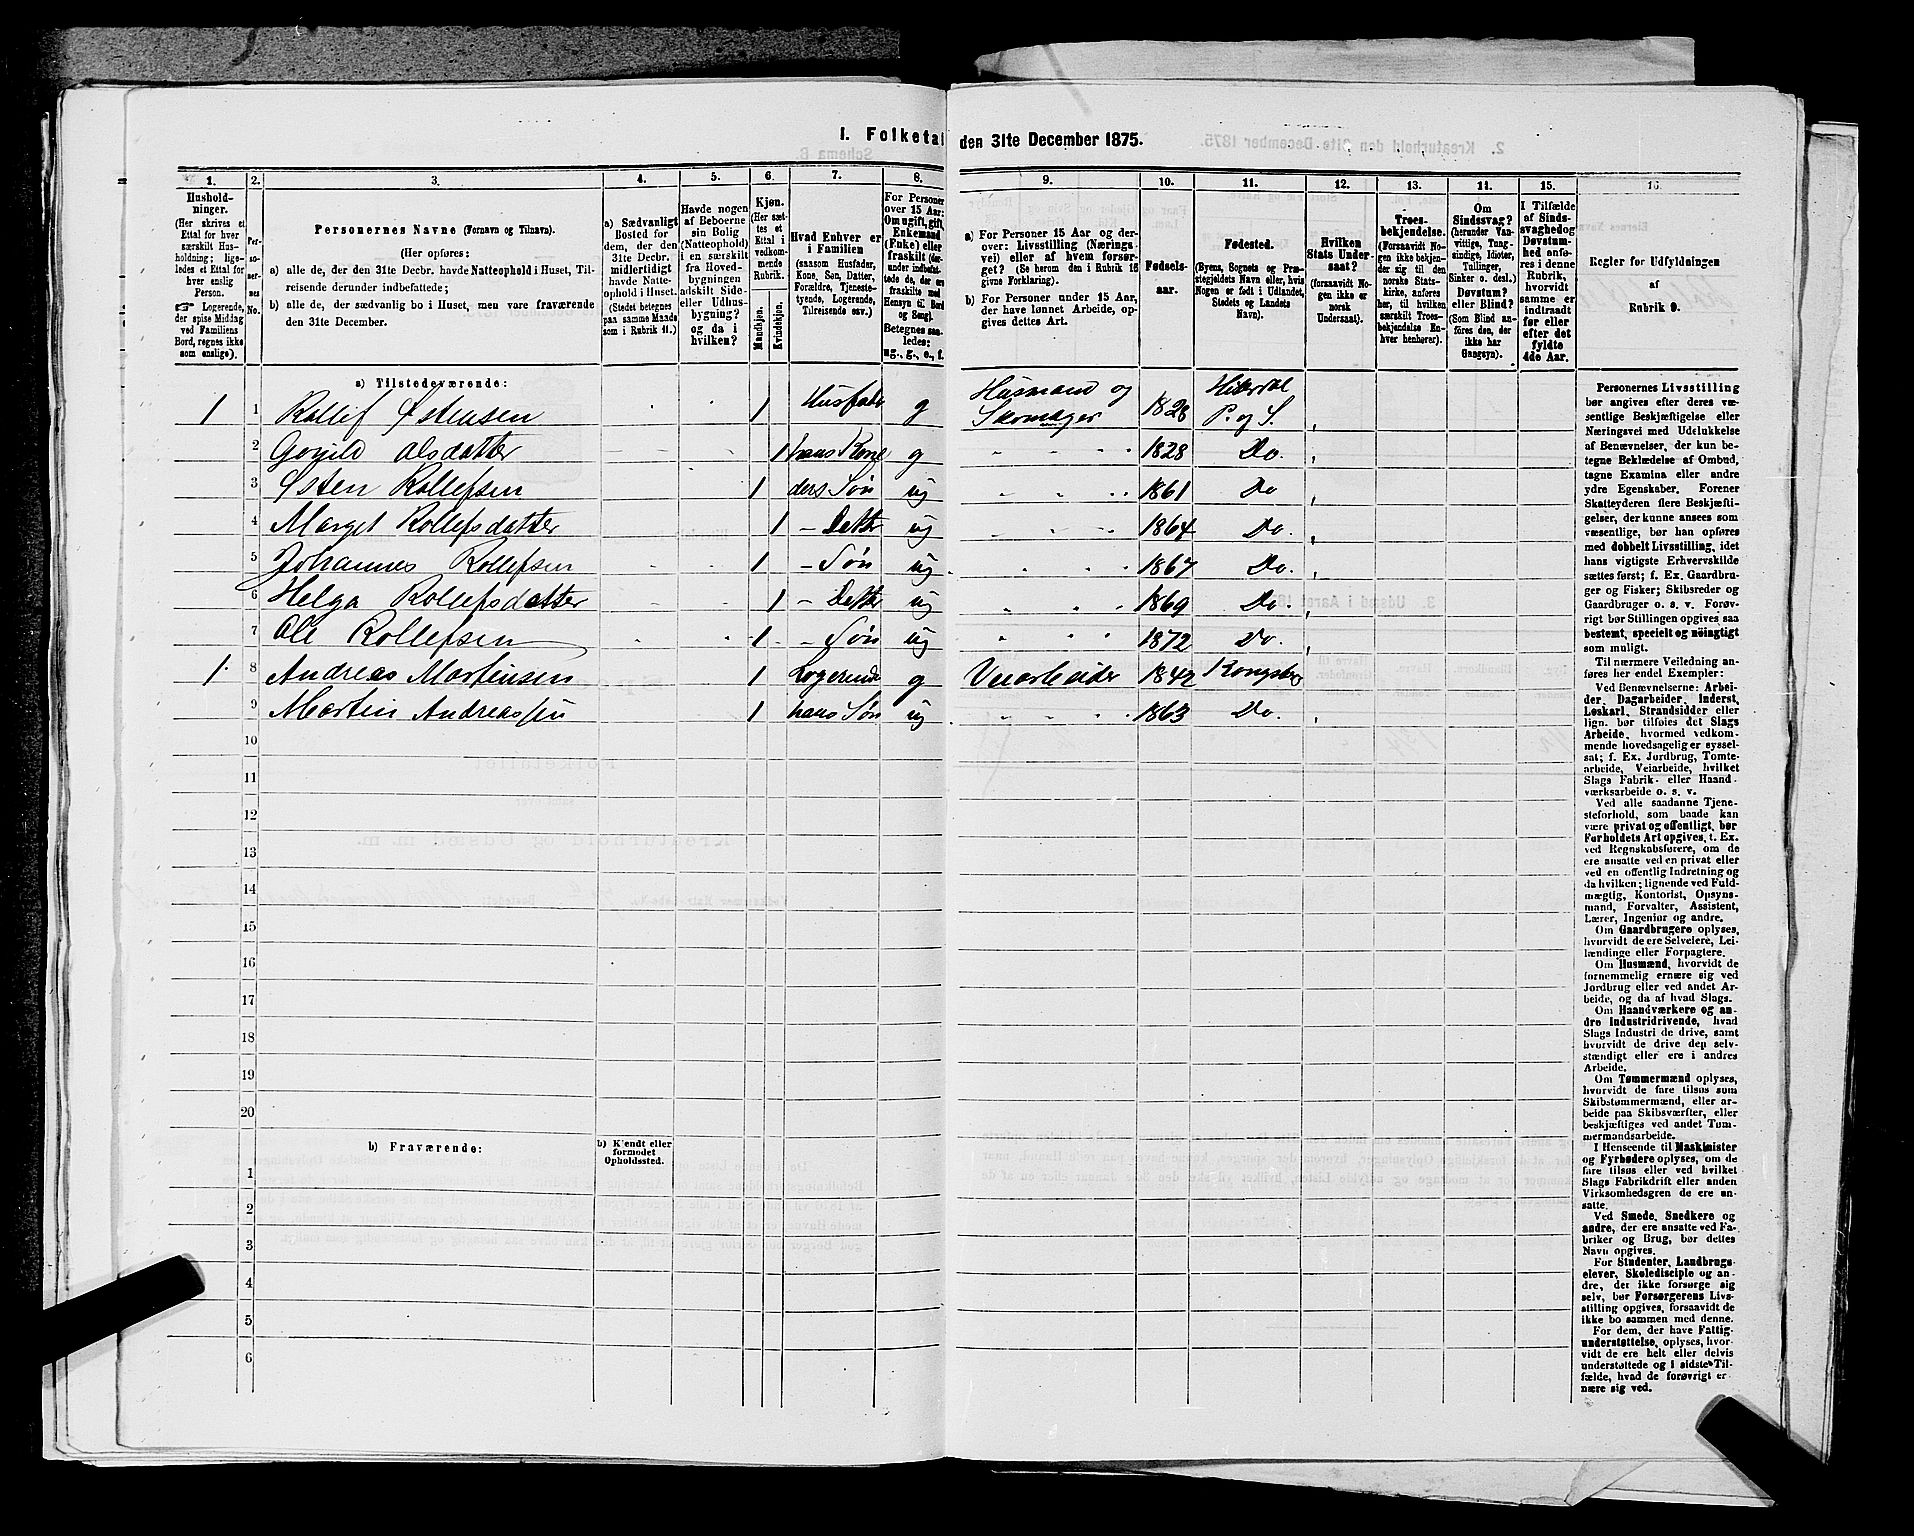 I. Folketal den 31te December 1875.
1. 2. 3. 4. 5. 6. 7. 8. 9. 10. 11. 12. 13. 14. 15. 16.
Hushold-
ninger.
(Her skrives et
Ettal for hver
særskilt Hus-
holdning; lige-
ledes et Ettal for
hver enslig
Person.
☞ Logerende,
der spise Middag
ved Familiens
Bord, regnes ikke
som enslige).
Per-
so-
ner-
nes
No.
Personernes Navne (Fornavn og Tilnavn).
(Her opføres:
a) alle de, der den 31te Decbr. havde Natteophold i Huset, Til-
reisende derunder indbefattede;
b) alle de, der sædvanlig bo i Huset, men vare fraværende
den 31te December.
a) Sædvanligt
Bosted for
dem, der den
31te Decbr.
midlertidigt
havde Natte-
ophold i Huset.
(Stedet betegnes
paa samme Maade
som i Rubrik 11.)
Havde nogen
af Beboerne
sin Bolig
(Natteophold)
i en særskilt
fra Hoved-
bygningen
adskilt Side-
eller Udhus-
bygning?
og da i
hvilken?
Kjøn.
(Her sæt-
tes et
Ettal i
vedkom-
mende
Rubrik.
Mandkjøn.
Kvindekjøn.
Hvad Enhver er
i Familien
(saasom Husfader,
Kone, Søn, Datter,
Forældre, Tjeneste-
tyende, Logerende,
Tilreisende osv.)
For Personer
over 15 Aar:
Om ugift, gift,
Enkemand
(Enke) eller
fraskilt (der-
under indbefat-
tede de, der ere
fraskilte med
Hensyn til Bord
og Seng).
Betegnes saa-
ledes:
ug., g., e., f.
a) For Personer 15 Aar og der-
over: Livsstilling (Nærings-
vei) eller af hvem forsør-
get? (Se herom den i Rubrik 16
givne Forklaring).
b) For Personer under 15 Aar,
der have lønnet Arbeide, op-
gives dettes Art.
Fødsels-
aar.
Fødested.
(Byens, Sognets og Præ-
stegjeldets Navn eller, hvis
Nogen er født i Udlandet,
Stedets og Landets
Navn).
Hvilken
Stats Under-
saat?
(forsaavidt No-
gen ikke er
norsk
Undersaat).
Troes-
bekjendelse.
(Forsaavidt No-
gen ikke bekjen-
der sig til den
norske Stats-
kirke, anføres
her, til hvilken
særskilt Troes-
bekjendelse En-
hver henhører).
Om
Sindssvag?
(herunder Van-
vittige, Tung-
sindige, Idioter,
Tullinger,
Sinker o. desl.)
Døvstum?
eller Blind?
(Som Blind an-
føres den, der
ikke har
Gangsyn).
I Tilfælde
af Sinds-
svaghed og
Døvstum-
hed anføres
i denne
Rubrik,
hvorvidt
samme er
indtraadt
før eller
efter det
fyldte
4de Aar.
Regler for Udfyldningen
af
Rubrik 9.
a) Tilstedeværende:
1 1 Rollef Østensen 1 Husfader g Husmand og Skomager 1828 Hiterdal P. og S.
2 Gonild Olsdatter 1 hans Kone g 1828 Do.
3 Østen Rollefsen 1 ders Søn ug 1861 Do
4 Marget Rollefsdatter 1 – Datter ug 1864 Do.
5 Johannes Rollefsen 1 – Søn ug 1867 Do.
6 Helga Rollefsdatter 1 – Datter ug 1869 Do.
7 Ole Rollefsen 1 – Søn ug 1872 Do.
1. 8 Andreas Martinsen 1 Logerende g Veiarbeider 1842 Kongsberg
9 Martin Andreassen 1 hans Søn ug 1863 Do.
10
11
12
13
14
15
16
17
18
19
20
b) Fraværende:
b) Kjendt eller
formodet
Opholdssted.
1
2
3
4
5
6
Personernes Livsstilling
bør angives efter deres væ-
sentlige Beskjæftigelse eller
Næringsvei med Udelukkelse
af Benævnelser, der kun be-
tegne Beklædelse af Ombud,
tagne Examina eller andre
ydre Egenskaber. Forener
Skatteyderen flere Beskjæfti-
gelser, der kunne ansees som
væsentlige, bør han opføres
med dobbelt Livsstilling, idet
hans vigtigste Erhvervskilde
sættes først; f. Ex. Gaardbru-
ger og Fisker; Skibsreder og
Gaardbruger o. s. v. Forøv-
rigt bør Stillingen opgives saa
bestemt, specielt og nöiagtigt
som muligt.
Til nærmere Veiledning an-
føres her endel Exempler:
Ved Benævnelserne: Arbei-
der, Dagarbeider, Inderst,
Løskarl, Strandsidder eller
lign. bør tilføies det Slags
Arbeide, hvormed vedkom-
mende hovedsagelig er syssel-
sat; f. Ex. Jordbrug, Tomte-
arbeide, Veiarbeide, hvilket
Slags Fabrik- eller Haand-
værksarbeide o. s. v.
Ved alle saadanne Tjene-
steforhold, som baade kan
være privat og offentligt, bør
Forholdets Art opgives, f. Ex.
ved Regnskabsførere, om de
ere ansatte ved en privat eller
ved en offentlig Indretning og
da hvilken; lignende ved Fuld-
mægtig, Kontorist, Opsyns-
mand, Forvalter, Assistent,
Lærer, Ingeniør og andre.
Om Gaardbrugere oplyses,
hvorvidt de ere Selveiere, Lei-
lændinge eller Forpagtere.
Om Husmænd, hvorvidt de
fornemmelig ernære sig ved
Jordbrug eller ved andet Ar-
beide, og da af hvad Slags.
Om Haandværkere og an-
dre Industridrivende, hvad
Slags Industri de drive, samt
hvorvidt de drive den selv-
stændigt eller ere i andres
Arbeide.
Om Tømmermænd oplyses,
hvorvidt de fare tilsøs som
Skibstømmermænd, eller ar-
beide paa Skibsværfter, eller
beskjæftiges ved andet Tøm-
mermandsarbeide.
I Henseende til Maskinister
og Fyrbødere oplyses, om de
fare tilsøs eller ved hvilket
Slags Fabrikdrift eller anden
Virksomhedsgren de ere an-
satte.
Ved Smede, Snedkere og
andre, der ere ansatte ved Fa-
briker og Brug, bør dettes
Navn opgives.
For Studenter, Landbrugs-
elever, Skoledisciple og an-
dre, der ikke forsørge sig
selv, bør Forsørgerens Livs-
stilling opgives, forsaavidt de
ikke bo sammen med denne.
For dem, der have Fattig-
understøttelse, oplyses, hvor-
vidt de ere helt eller delvis
understøttede og i sidste Til-
fælde, hvad de forøvrigt er-
nære sig ved.